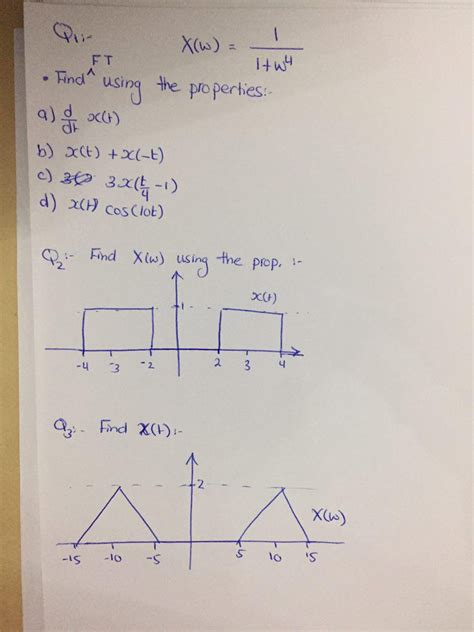 Q1:- X(w) = 1 / 1+w4
FT
• Find ^ using the properties:-
a) d/dt x(t)
b) x(t) + x(-t)
c) 3x(t/4 -1)
d) x(t) cos(10t)
Q2:- Find X(w) using the prop. :-
x(t)
1
-4 -3 -2 2 3 4
Q3:- Find X(t):-
2
X(w)
-15 -10 -5 5 10 15